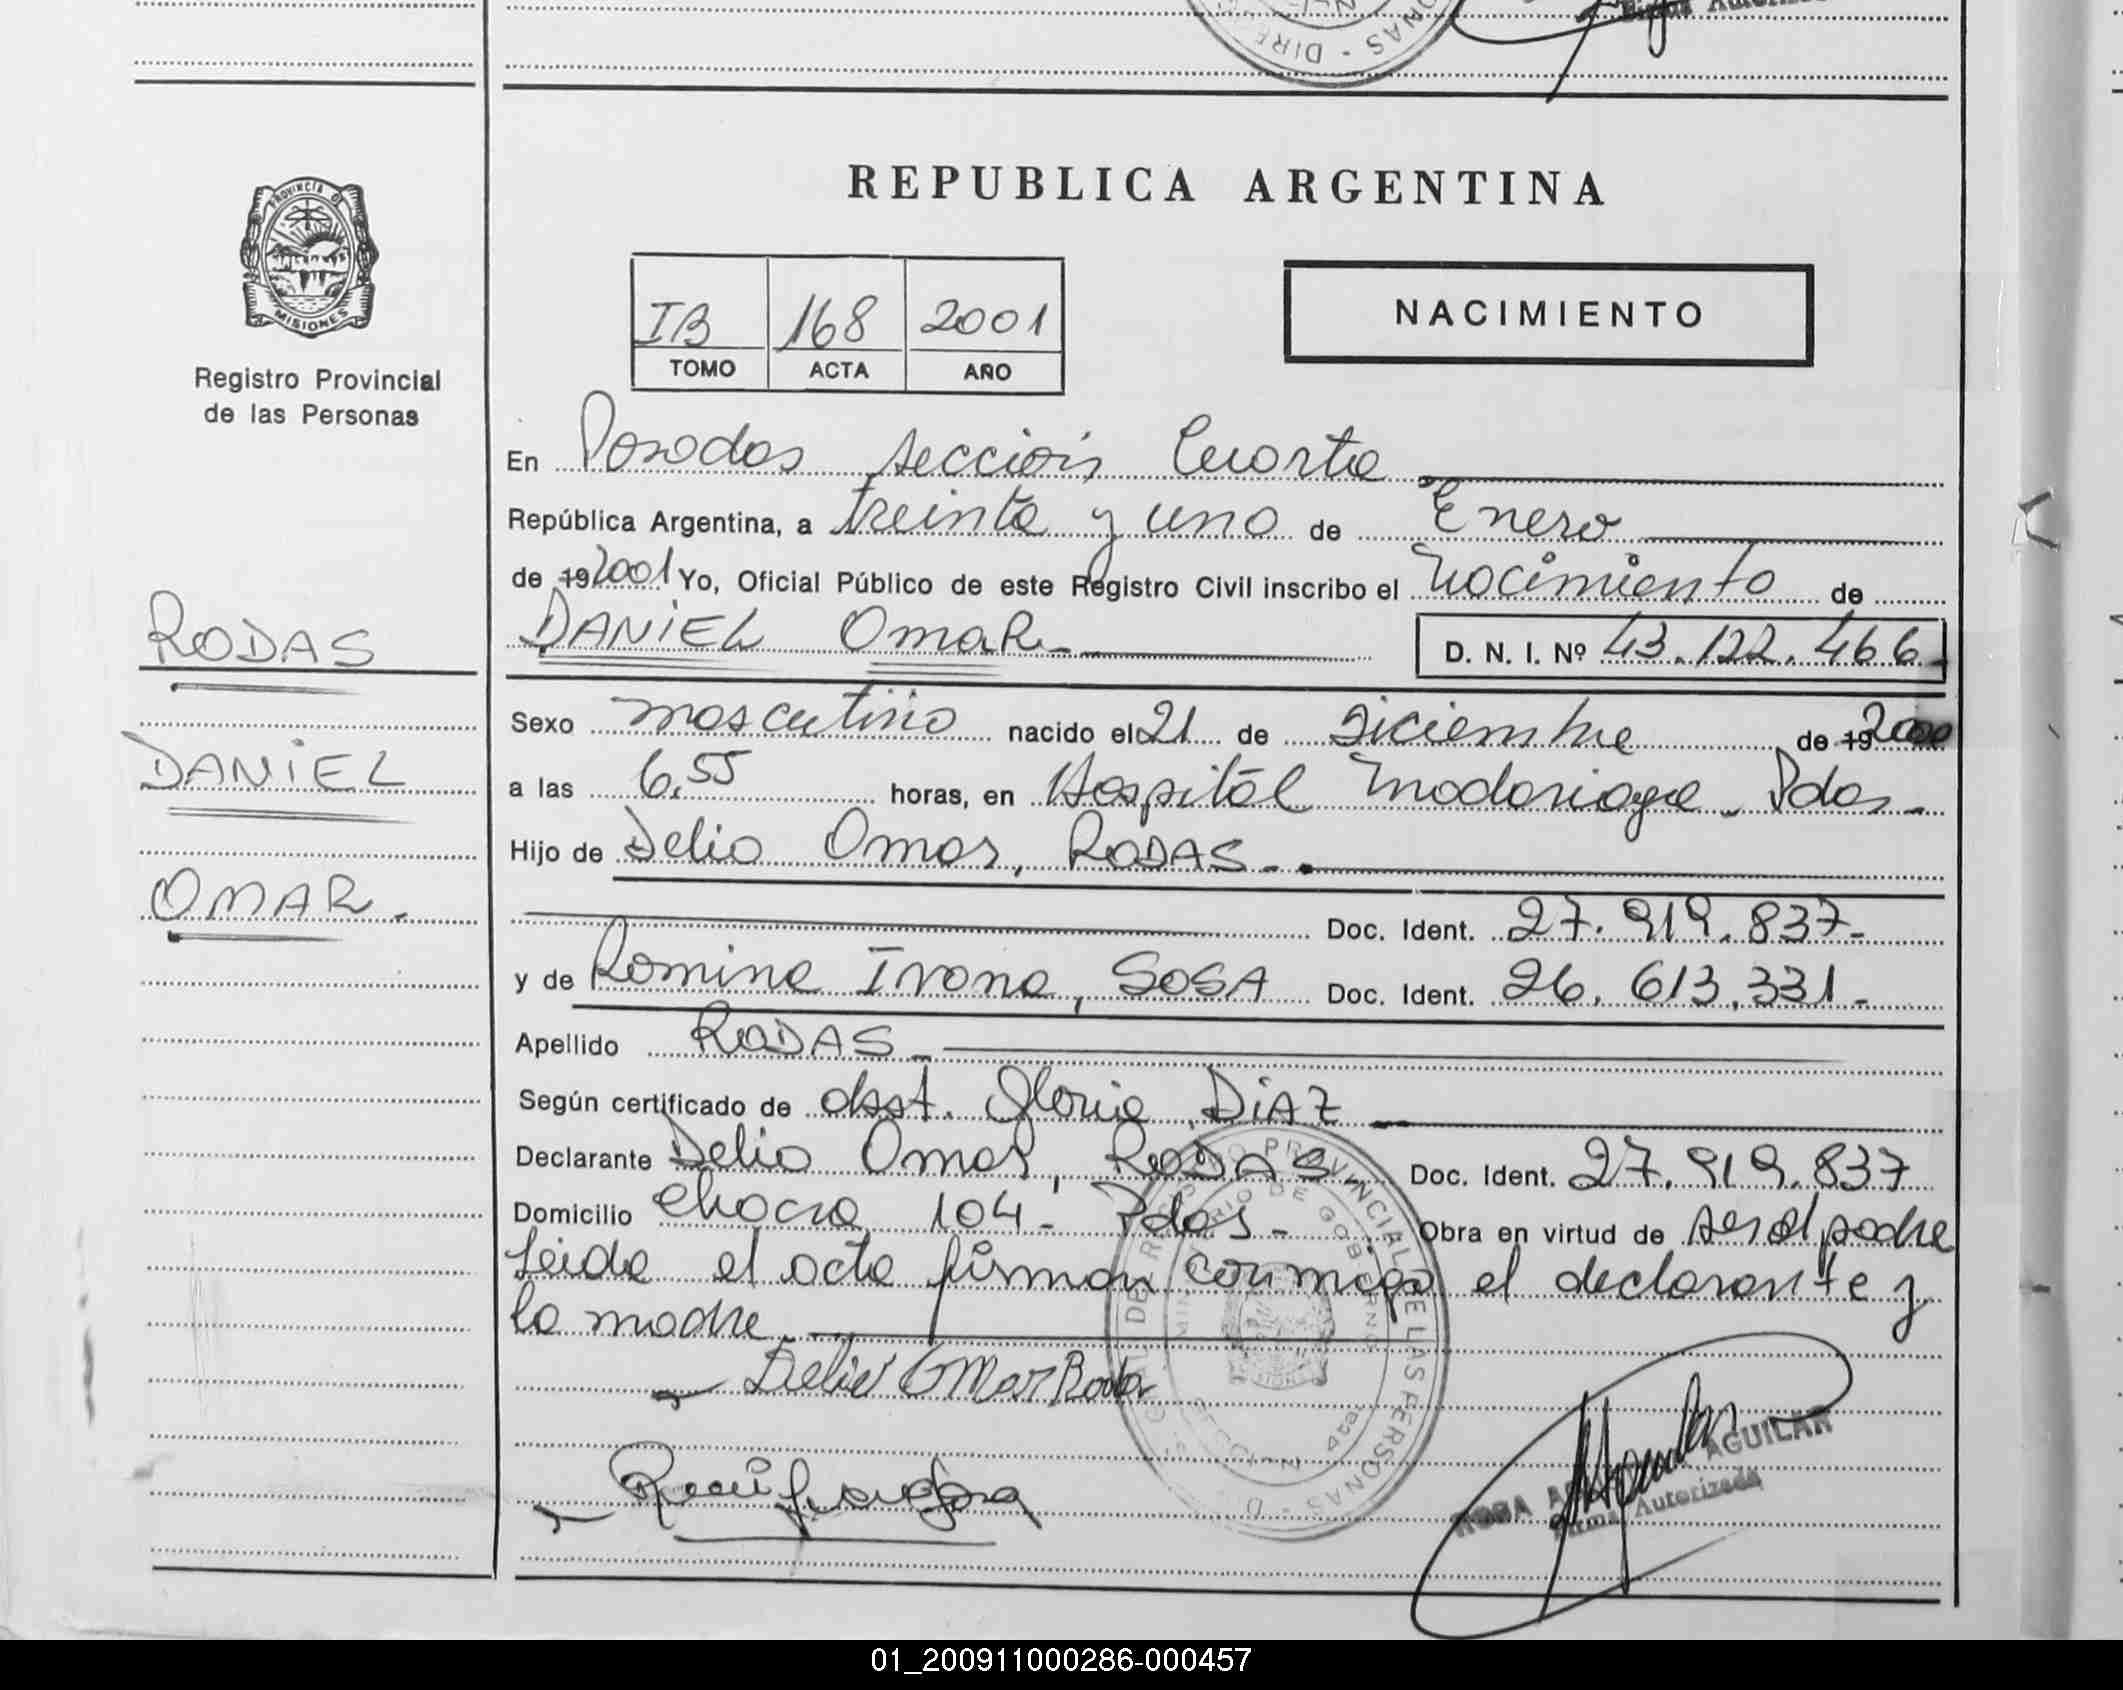 REPUBLICA ARGENTINA
PROVINCIA DE
MISIONES
Registro Provincial
de las Personas
IB 168 2001
TOMO ACTA AÑO
NACIMIENTO
En Posadas sección Cuarta
República Argentina, a treinta y uno de Enero
de 19 2001 Yo, Oficial Público de este Registro Civil inscribo el nacimiento de
RODAS
DANIEL OmaR D. N. I. Nº 43.122.466
Sexo masculino nacido el 21 de Diciembre de 19 2000
DANIEL
a las 6,55 horas, en Hospital Madariaga - Pdas -
Hijo de Delio Omar, RODAS -
OMAR -
Doc. Ident. 27.919.837-
y de Romina Ivana, SOSA Doc. Ident. 26.613.331-
Apellido RODAS -
Según certificado de obst. Gloria DIAZ
Declarante Delio Omar, RODAS Doc. Ident. 27.919.837
Domicilio Chacra 104 - Pdas - Obra en virtud de ser el padre
Leida el acta firman conmigo el declarante y
la madre
Delio Omar Roda
AGUILAR
ROSA
Firma Autorizada
01_200911000286-000457